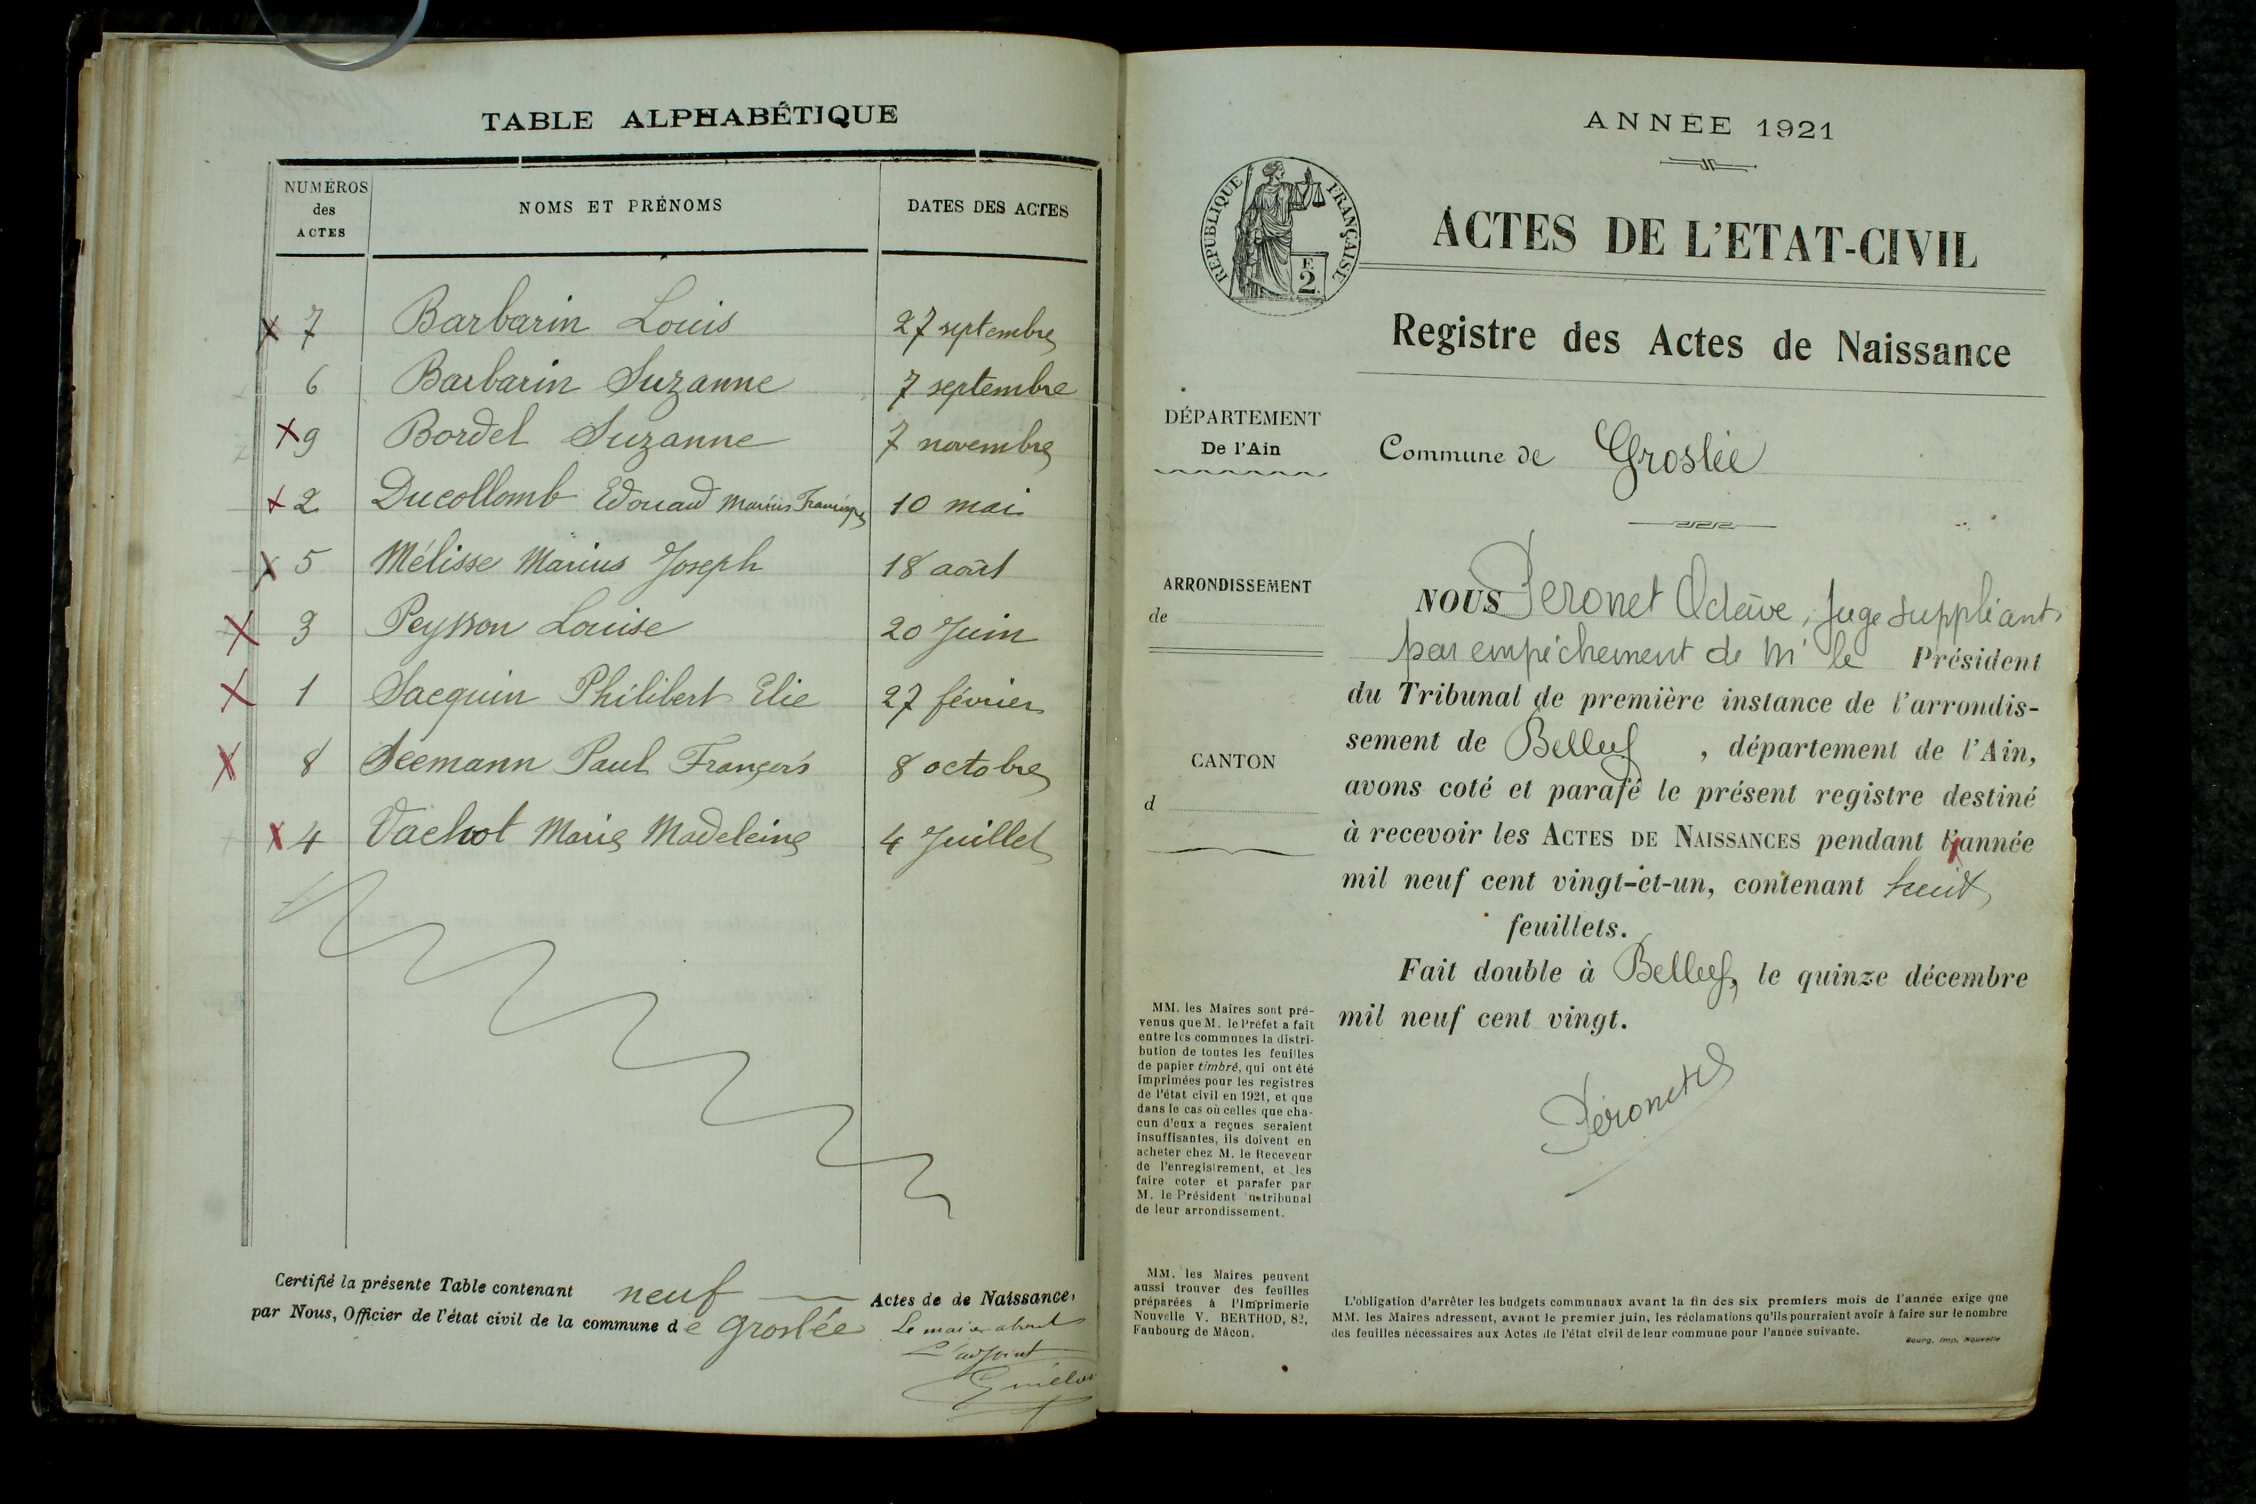 TABLE ALPHABÉTIQUE
NUMÉROS
des
ACTES
NOMS ET PRÉNOMS
DATES DES ACTES
X 7 Barbarin Louis 27 septembre
6 Barbarin Suzanne 7 septembre
X 9 Bordel Suzanne 7 novembre
X 2 Ducollomb Edouard Marius François 10 mai
X 5 Mélisse Marius Joseph 18 août
X 3 Peysson Louise 20 Juin
X 1 Sacquin Philibert Elie 27 février
X 8 Seemann Paul François 8 octobre
X 4 Vachot Marie Madeleine 4 Juillet
Certifié la présente Table contenant neuf Actes de de Naissance,
par Nous, Officier de l'état civil de la commune de Groslée
Le maire absent
L'adjoint
ANNÉE 1921
RÉPUBLIQUE FRANÇAISE
E
2
ACTES DE L'ETAT-CIVIL
Registre des Actes de Naissance
DÉPARTEMENT
De l'Ain
Commune de Groslée
ARRONDISSEMENT
de
CANTON
d
NOUS Peronet Octave, Juge suppléant
par empêchement de Mr le Président
du Tribunal de première instance de l'arrondis-
sement de Belley, département de l'Ain,
avons coté et parafé le présent registre destiné
à recevoir les ACTES DE NAISSANCES pendant l'année
mil neuf cent vingt-et-un, contenant huit
feuillets.
Fait double à Belley, le quinze décembre
mil neuf cent vingt.
Péronet
MM. les Maires sont pré-
venus que M. le Préfet a fait
entre les communes la distri-
bution de toutes les feuilles
de papier timbré, qui ont été
imprimées pour les registres
de l'état civil en 1921, et que
dans le cas où celles que cha-
cun d'eux a reçues seraient
insuffisantes, ils doivent en
acheter chez M. le Receveur
de l'enregistrement, et les
faire coter et parafer par
M. le Président tribunal
de leur arrondissement.
MM. les Maires peuvent
aussi trouver des feuilles
préparées à l'Imprimerie
Nouvelle V. BERTHOD, 82,
Faubourg de Mâcon.
L'obligation d'arrêter les budgets communaux avant la fin des six premiers mois de l'année exige que
MM. les Maires adressent, avant le premier juin, les réclamations qu'ils pourraient avoir à faire sur le nombre
des feuilles nécessaires aux Actes de l'état civil de leur commune pour l'année suivante.
Bourg, Imp. Nouvelle